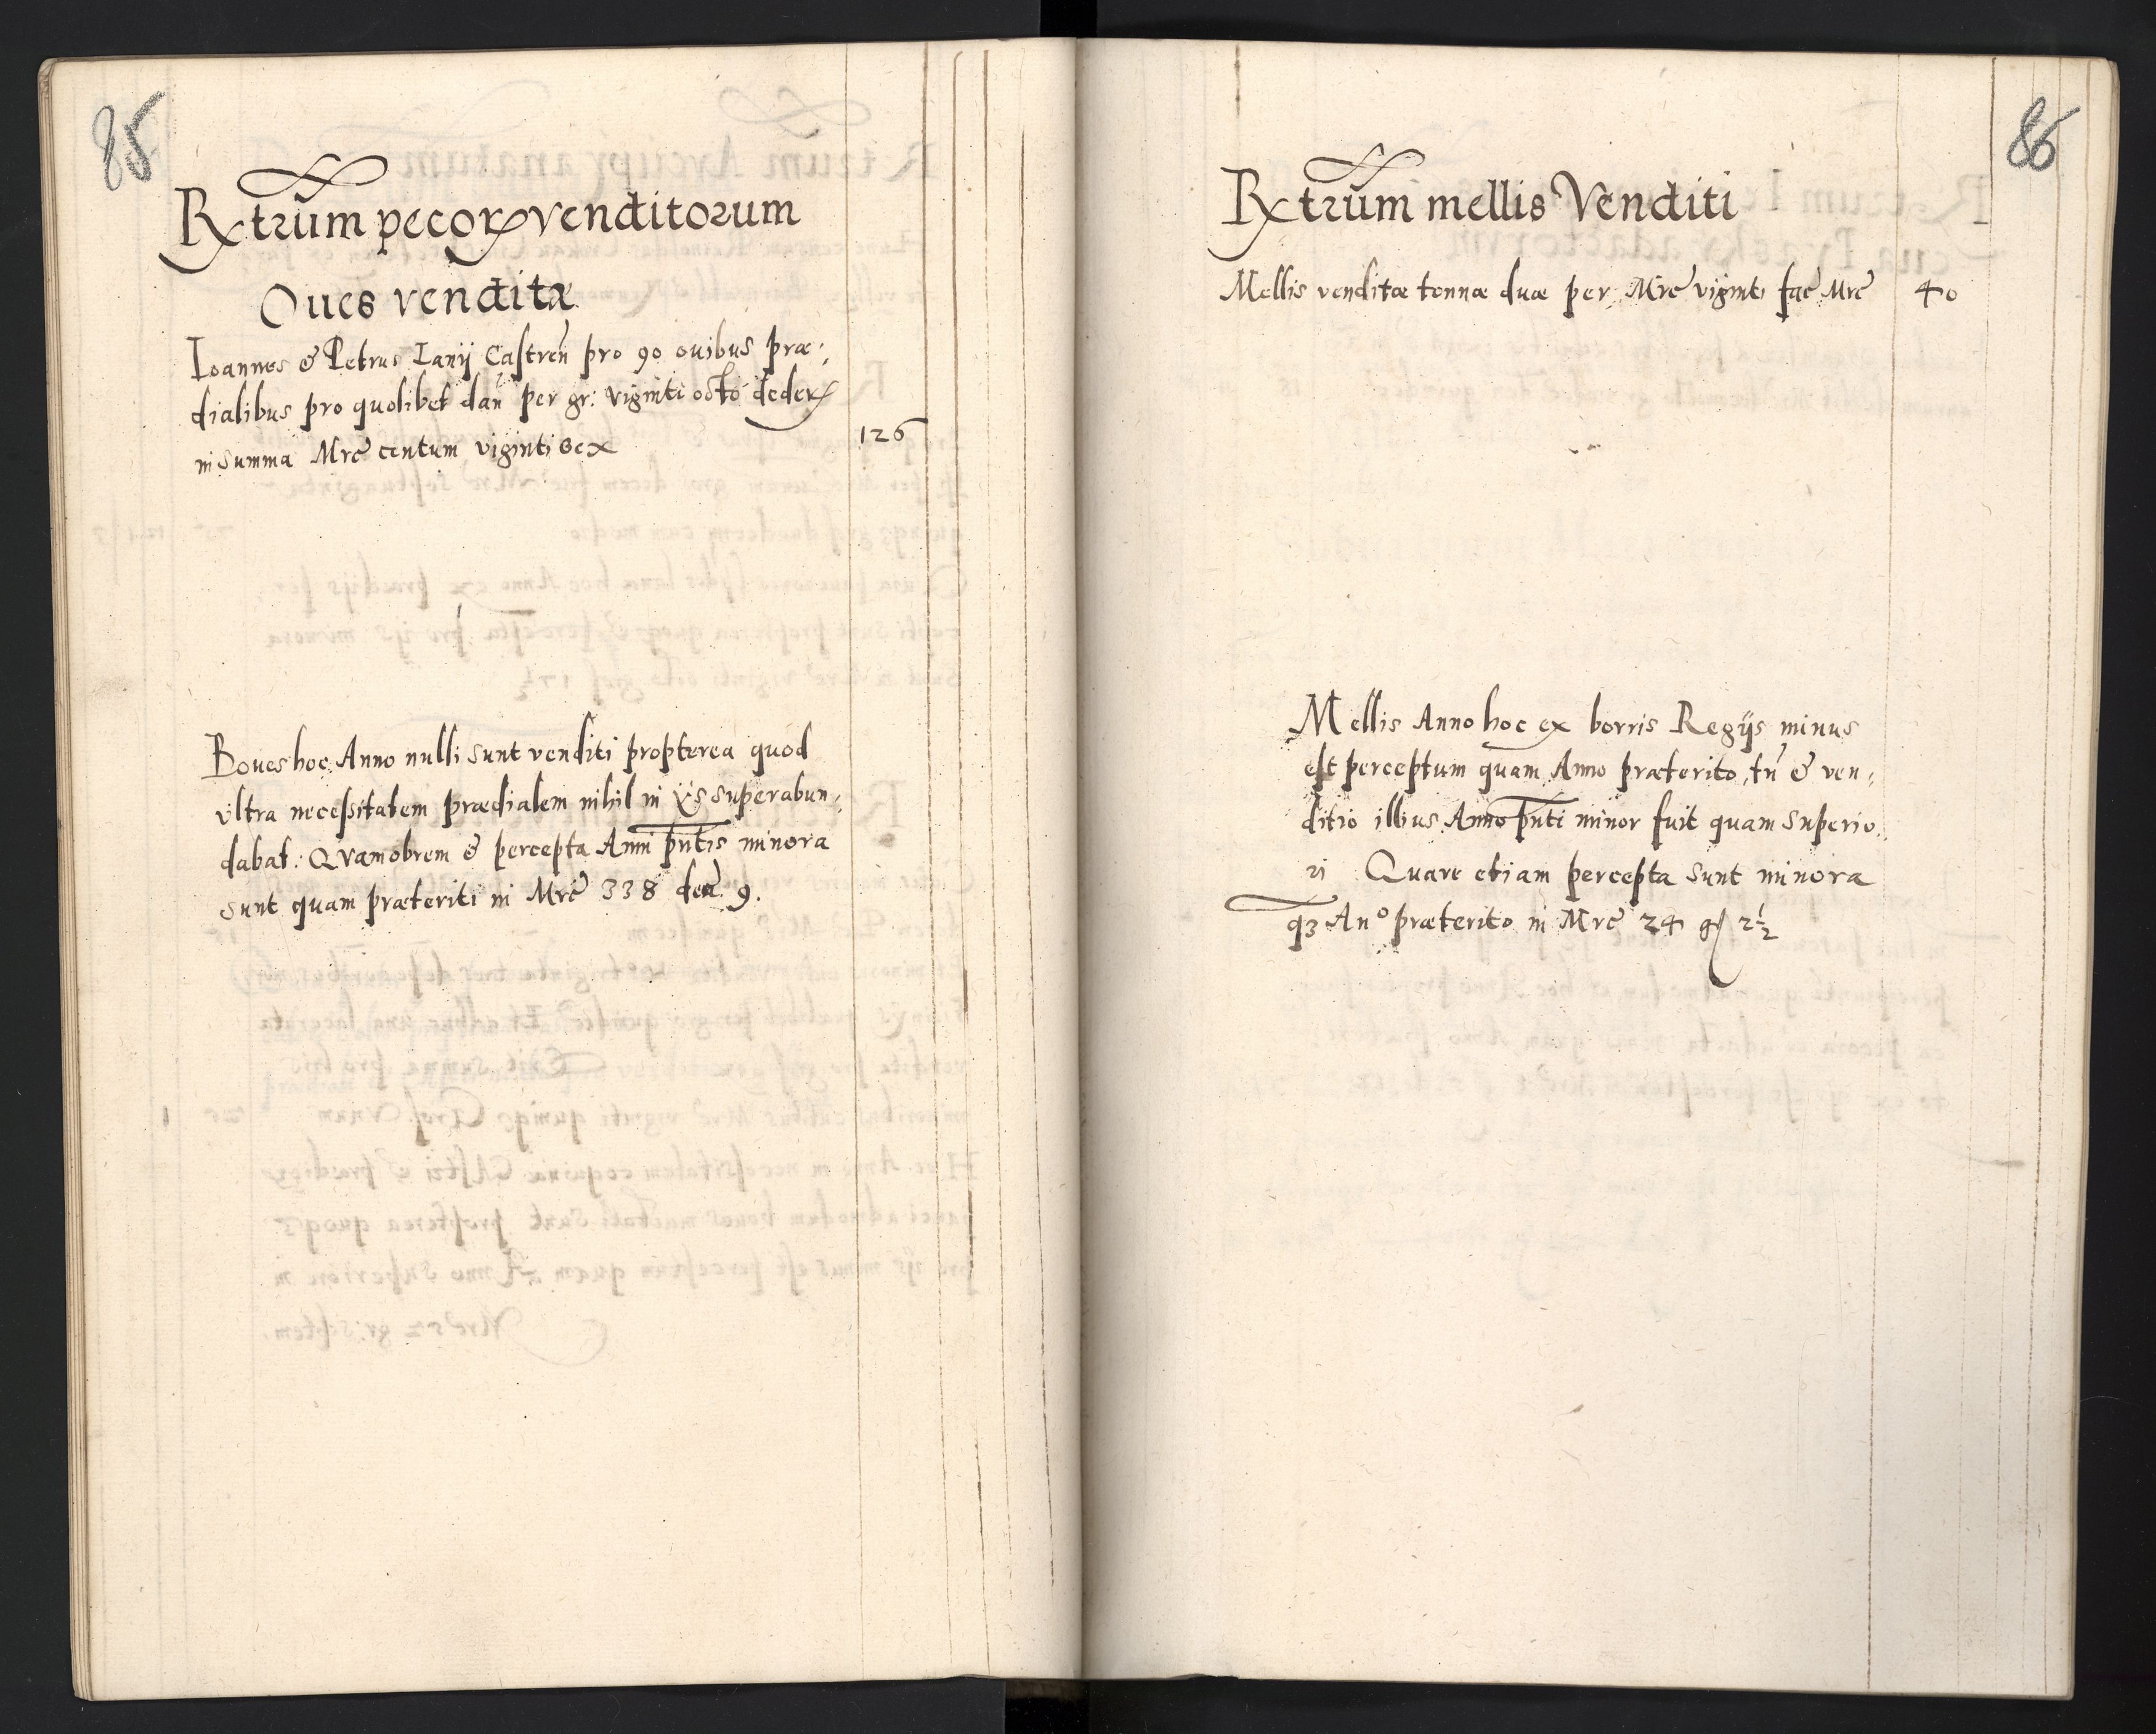 85
Rxtrum pecorꝝ venditorum
Oues venditæ
Ioannes & Petrus Ianij Castreñ pro 90 ouibus præ:
dialibus pro quolibet dan̄ per gr: viginti octo dederꝝ
in summa Mrc̄ centum viginti sex 126
Boues hoc Anno nulli sunt venditi propterea quod
vltra necessitatem prædialem nihil in ijs superabun:
dabat: Quamobrem & percepta Anni pn̄tis minora
sunt quam præteriti in Mrc̄ 338 den̄ 9.
86
Rxtrum mellis Venditi
Mellis venditæ tonnæ duæ per Mrc̄ viginti fac̄ Mrc̄ 40
Mellis Anno hoc ex borris Regijs minus
est perceptum quam Anno præterito, tn̄ & ven:
ditio illius Anno pn̄ti minor fuit quam superio.
ri Quare etiam percepta sunt minora
qȝ Anº præterito in Mrc̄ 24 gſ 2½